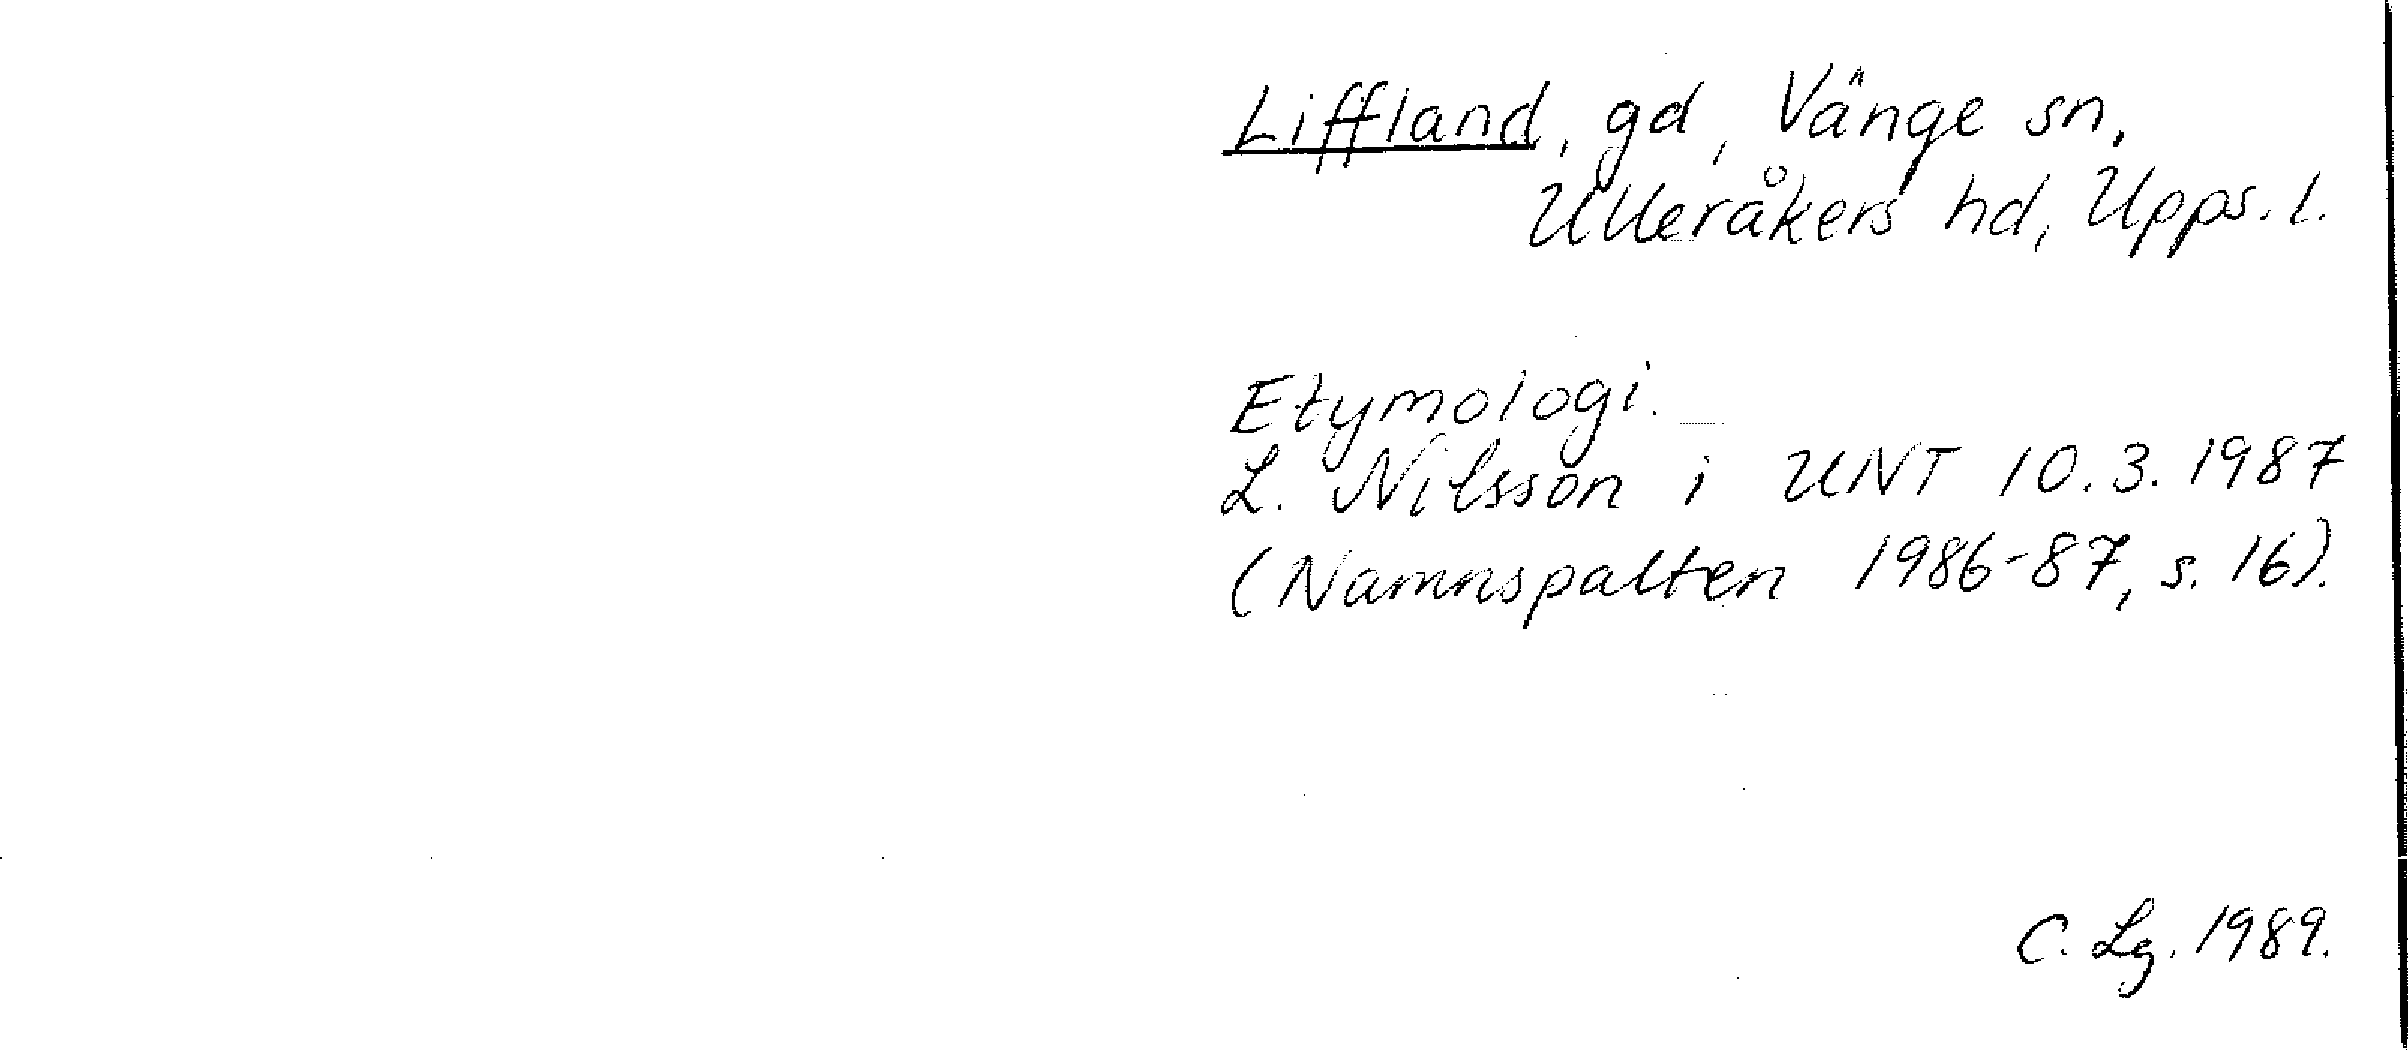 Liffland, gd, Vänge sn,
Ulleråkers hd, Upps. l.
Etymologi.
L. Nilsson i UNT 10.3.1987
(Namnspalten 1986-87, s. 16).
C. Lg. 1989.